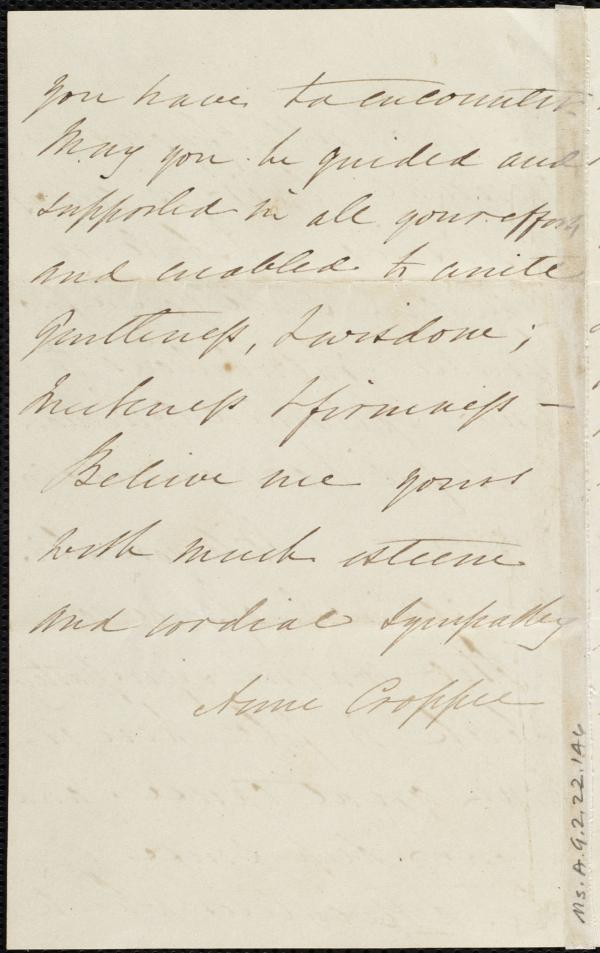 you have to encounter.
May you be guided and
supported in all your efforts
and enabled to unite
Gentleness, & wisdom;
Meekness & firmness –
Believe me yours
with much esteem
and cordial sympathy
Anne Cropper
Ms. A. 9. 2. 22. 146